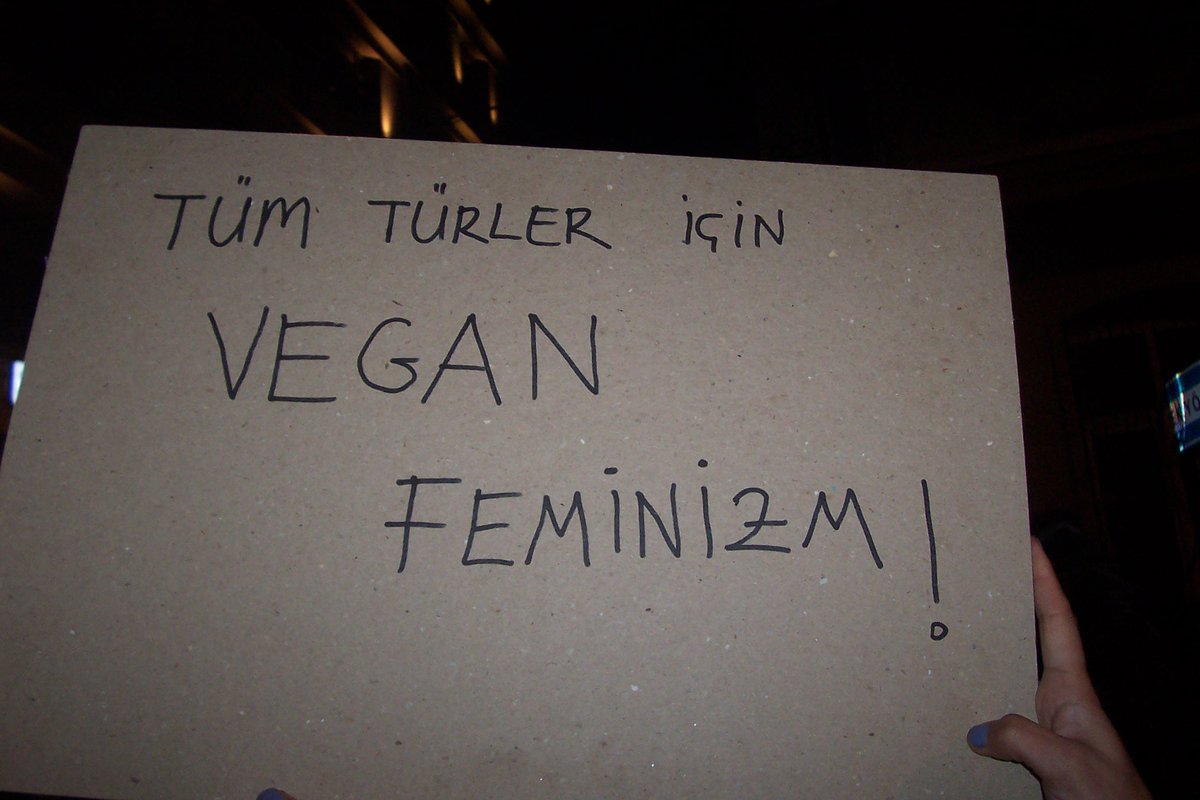 TÜM TÜRLER İÇİN
VEGAN
FEMİNİZM!